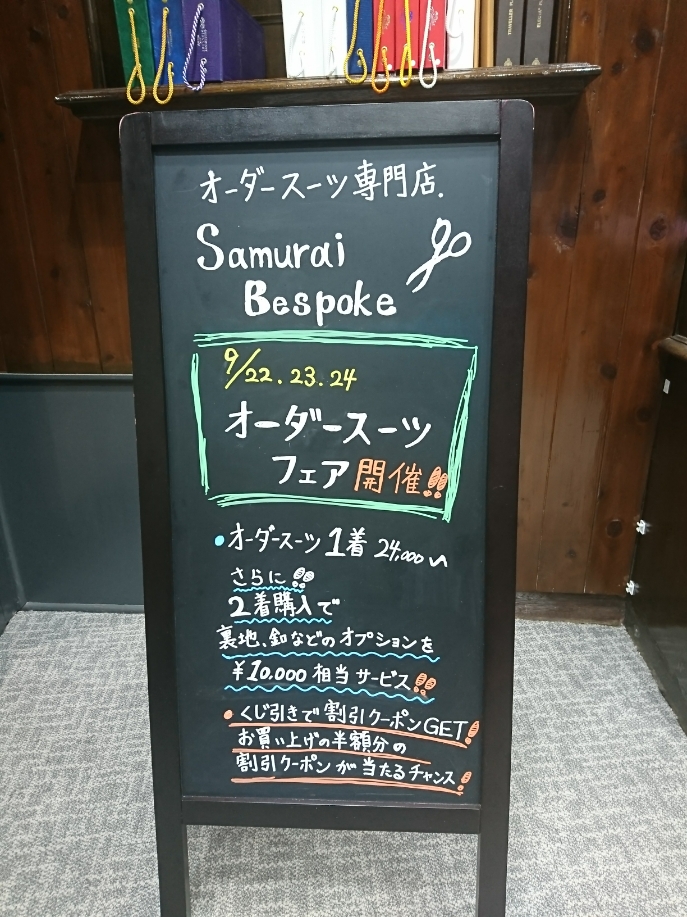 オーダースーツ専門店.
Samurai
Bespoke
9/22.23.24
オーダースーツ
フェア開催!!
・オーダースーツ1着 24,000〜
さらに!!
2着購入で
裏地、釦などのオプションを
¥10.000相当サービス!!
・くじ引きで割引クーポンGET!
お買い上げの半額分の
割引クーポンが当たるチャンス!